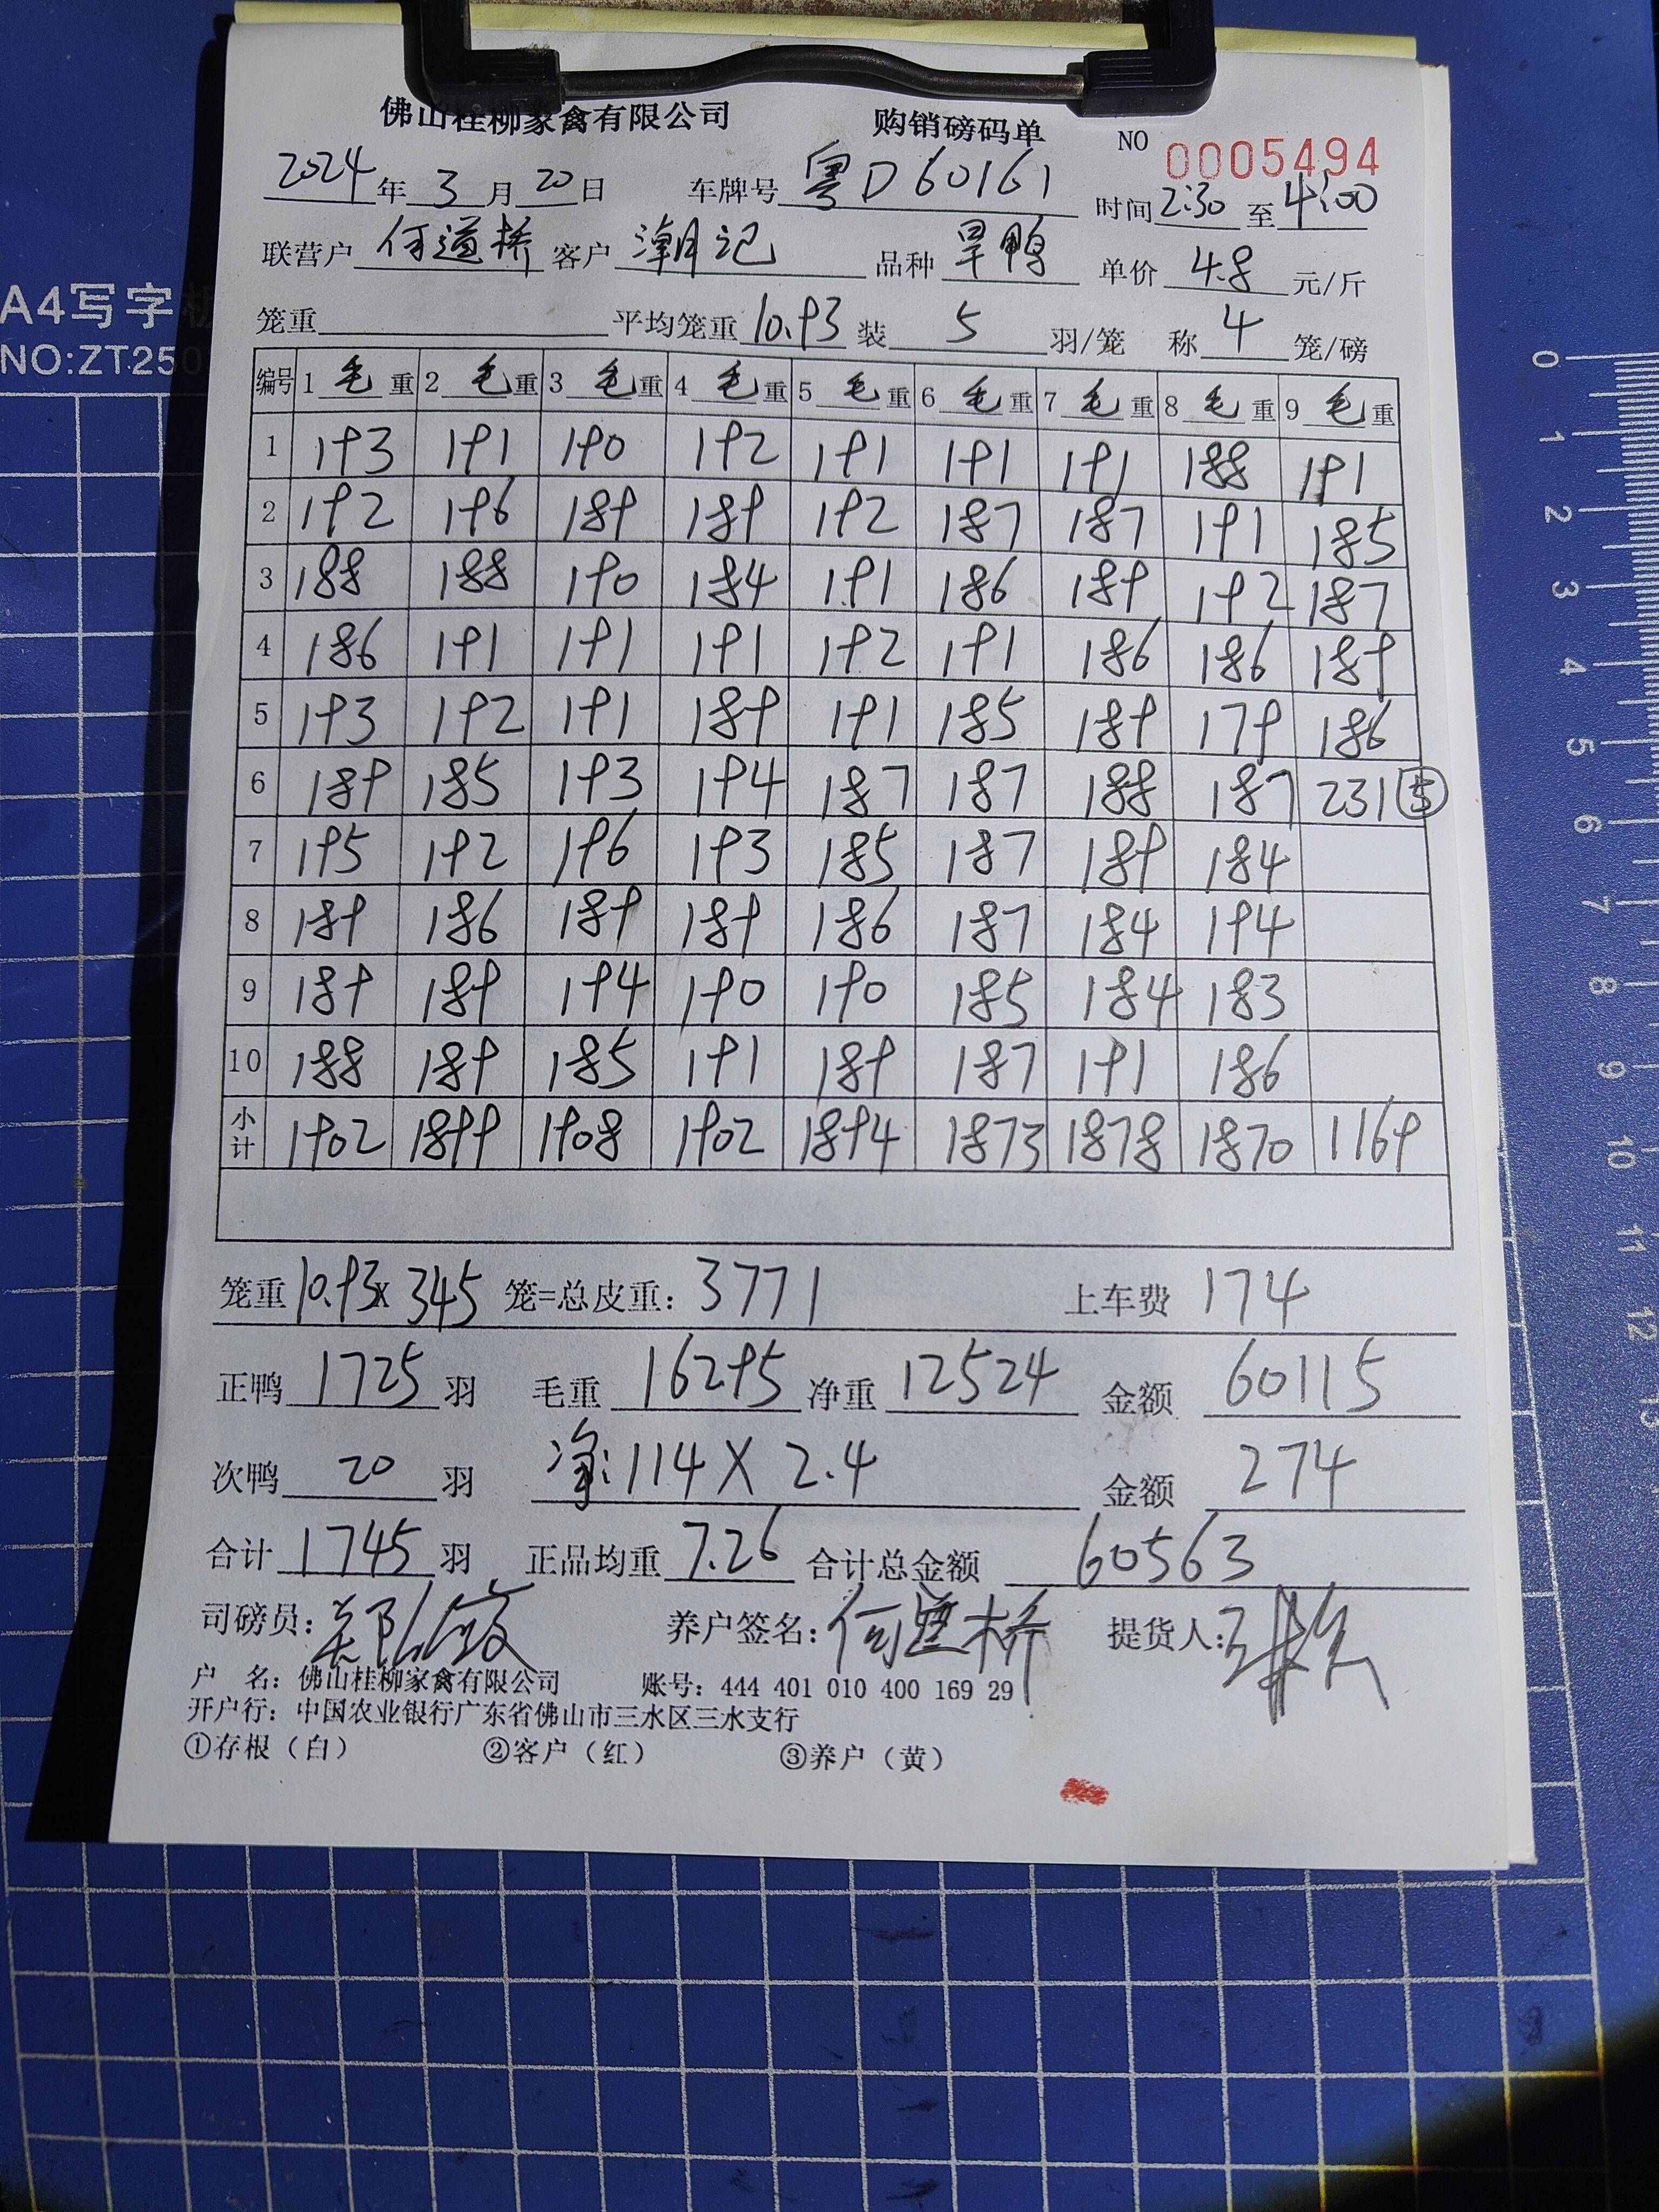 佛山桂柳家禽有限公司 购销磅码单 NO 0005494
2024年3月20日 车牌号 粤D60161 时间2:30至4:00
联营户 何道桥 客户 潮记 品种 旱鸭 单价 4.8 元/斤
笼重 平均笼重 10.93 装 5 羽/笼 称 4 笼/磅
编号 1毛重 2毛重 3毛重 4毛重 5毛重 6毛重 7毛重 8毛重 9毛重
1 193 191 190 192 191 191 191 188 191
2 192 196 189 189 192 187 187 191 185
3 188 188 190 184 191 186 189 192 187
4 186 191 191 191 192 191 186 186 189
5 193 192 191 189 191 185 189 179 186
6 189 185 193 194 187 187 188 187 231⑤
7 195 192 196 193 185 187 189 184
8 189 186 189 189 186 187 184 194
9 189 189 194 190 190 185 184 183
10 188 189 185 191 189 187 191 186
小计 1902 1899 1908 1902 1894 1873 1878 1870 1169
笼重10.93x345 笼=总皮重：3771 上车费 174
正鸭 1725 羽 毛重 16295 净重 12524 金额 60115
次鸭 20 羽 净：114X2.4 金额 274
合计 1745 羽 正品均重 7.26 合计总金额 60563
司磅员： 养户签名：何道桥 提货人：
户 名：佛山桂柳家禽有限公司 账号：444 401 010 400 169 29
开户行：中国农业银行广东省佛山市三水区三水支行
①存根（白） ②客户（红） ③养户（黄）
A4写字
NO:ZT250
0 1 2 3 4 5 6 7 8 9 10 11 12 13